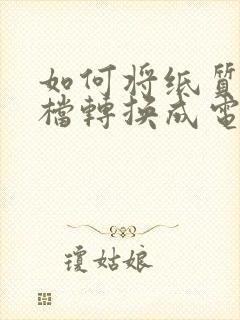 如何将纸質
檔轉換成電
瓊姑娘